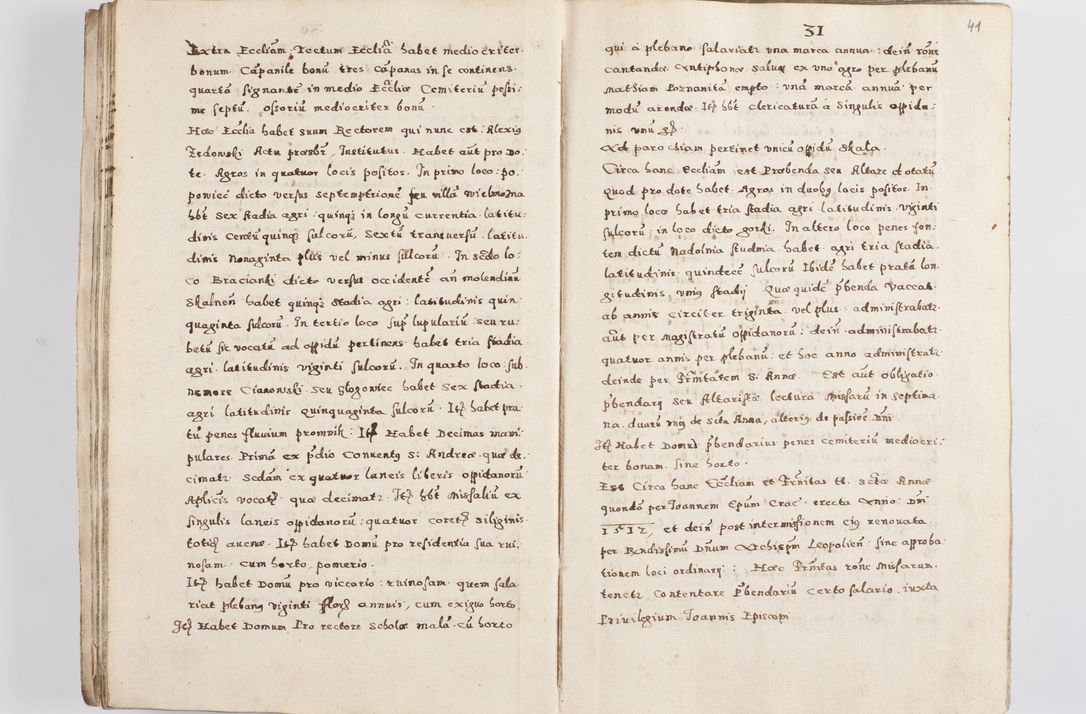 Extra Eccliam. Tectum Eccliæ habet mediocriter
bonum Cāpanile bonū tres Cāpanas in se continens.
quartā signantē in medio Eccliæ Cemiteriū pessi:
me septū. Ossoriū mediocriter bonū.
Hæc Ecclia habet suum Rectorem qui nunc est: Alexiꝰ
Zedowski Actu præsbr̃, Institutus. Habet aūt pro Do:
te. Agros in quatuor locis positos. In primo loco: po:
powiec dicto versus septemptrionē seu villā Wielmozna
hb̃t sex stadia agri: quinqꝫ in longū currentia latitu:
dinis Centū quinqꝫ sulcorū, sextū transuersū. latitu:
dinis Nonaginta plus vel minus sulcorū. In secdo lo:
co Bracianki dicto versus occidentē añ molendinū
Skalneñ habet quinqꝫ stadia agri: latitudinis quin:
quaginta sulcorū. In tertio loco sup̃ lupulariū seu ru:
betū sic vocatū ad oppidū pertinens habet tria stadia
agri. latitudinis viginti sulcorū. In quarto loco sub
nemore Cianowski seu glogowiec habet sex stadia.
agri latitudinis quinquaginta sulcorū. Itꝫ habet pra:
tū penes fluvium promnik: Itꝫ Habet Decimas mani:
pulares. Primā ex p̃dio Conuentꝰ S: Andreæ. quæ de:
cimatr sedam ex quatuor laneis liberis oppidanorū
Aplicis vocatꝫ quæ decimatr. Itꝫ hb̃t Missaliū ex
singulis laneis oppidanorū: quatuor coretꝫ siliginis
totidꝫ auenæ. Itꝫ habet Domū pro residentia sua rui:
nosam. cum horto, pomerio.
Itꝫ habet Domū pro viccario: ruinosam. quem sala:
riat plebanꝰ viginti florꝫ annuis, cum exiguo horto
Itꝫ Habet Domum Pro rectore Scholæ malā. Cū horto
31
41
qui à plebano salariatr vna marca annua: dein rōne
cantandæ Antiphonæ Salue ex vno agro per plebanū
Mathiam Poznanitā empto: vnā marcā annuā per
modū arendæ. Itꝫ hb̃t clericaturā à singulis oppida:
nis vnū gꝫ.
Ad parochiam pertinet vnicū oppidū Skala.
Circa hanc Eccliam est Præbenda seu Altare dotatū
quod pro dote habet. Agros in duobꝰ locis positos. In
primo loco habet tria stadia agri latitudinis viginti
sulcorū: in loco dicto gorki. In altero loco penes fon:
tem dictū Nadolnia studnia habet agri tria stadia.
latitudinis quindecē sulcorū Ibidē habet pratū lon:
gitudinis vniꝰ stadij Quæ quidē p̃benda vaccat
ab annis circiter triginta vel plus administrabatr
aūt per magistratū oppidanorū: dein administrabatr
quatuor annis per plebanū: et hoc anno administratr
deinde per Fr̃nitatem S: Annæ. Est aūt obligatio
p̃bendarij seu Altaristæ lectura missarū in septima
na. duarū vniꝰ de Sctā Anna, alteriꝰ de passiōe Dñi
Itꝫ Habet Domū p̃bendarius penes cemiteriū mediocri:
ter bonam. sine horto.
Est Circa hanc Eccliam et Fr̃nitas tt. sctæ Annæ
quondā per Joannem Epum Crac. erecta Anno: Dñi
1512, et dein post intermissionem eiꝰ renouata
per Rendissimū Dñum Archiepm Leopolieñ: sine approba:
tionem loci ordinarij: Hæc Fr̃nitas rōne Missarum.
tenetr Contentare P̃bendariū certo salario. iuxta
Priuilegium Joannis Episcopi